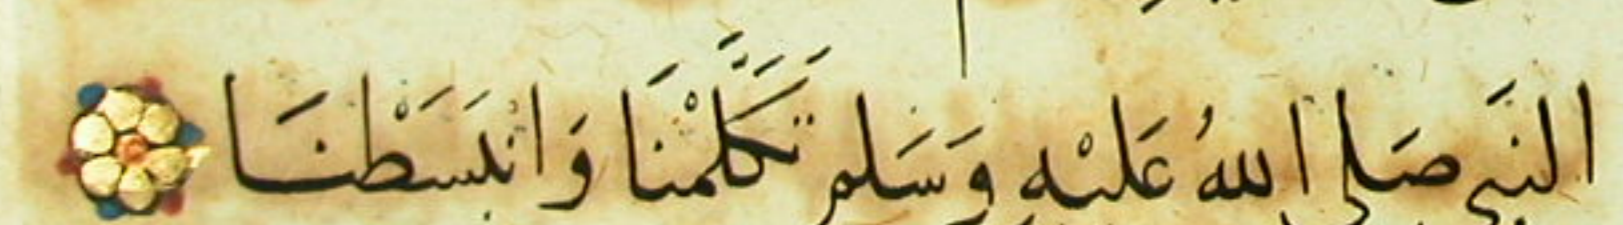 النَبي صَلى اللهُ عَليْه وَسَلم تَكَلَّمْنَا وَانْبَسَطْنَا